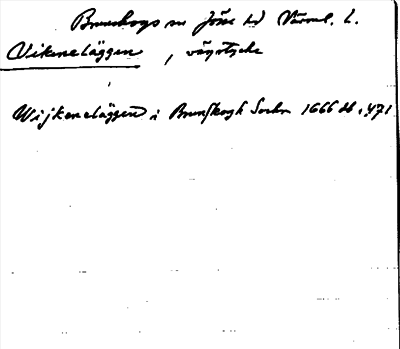 Brunskogs sn Jösse hd Värml. l.
Vikeneläggen, vägstycke
Wijkeneläggen i Brunskogh Sockn 1666 db s. 471